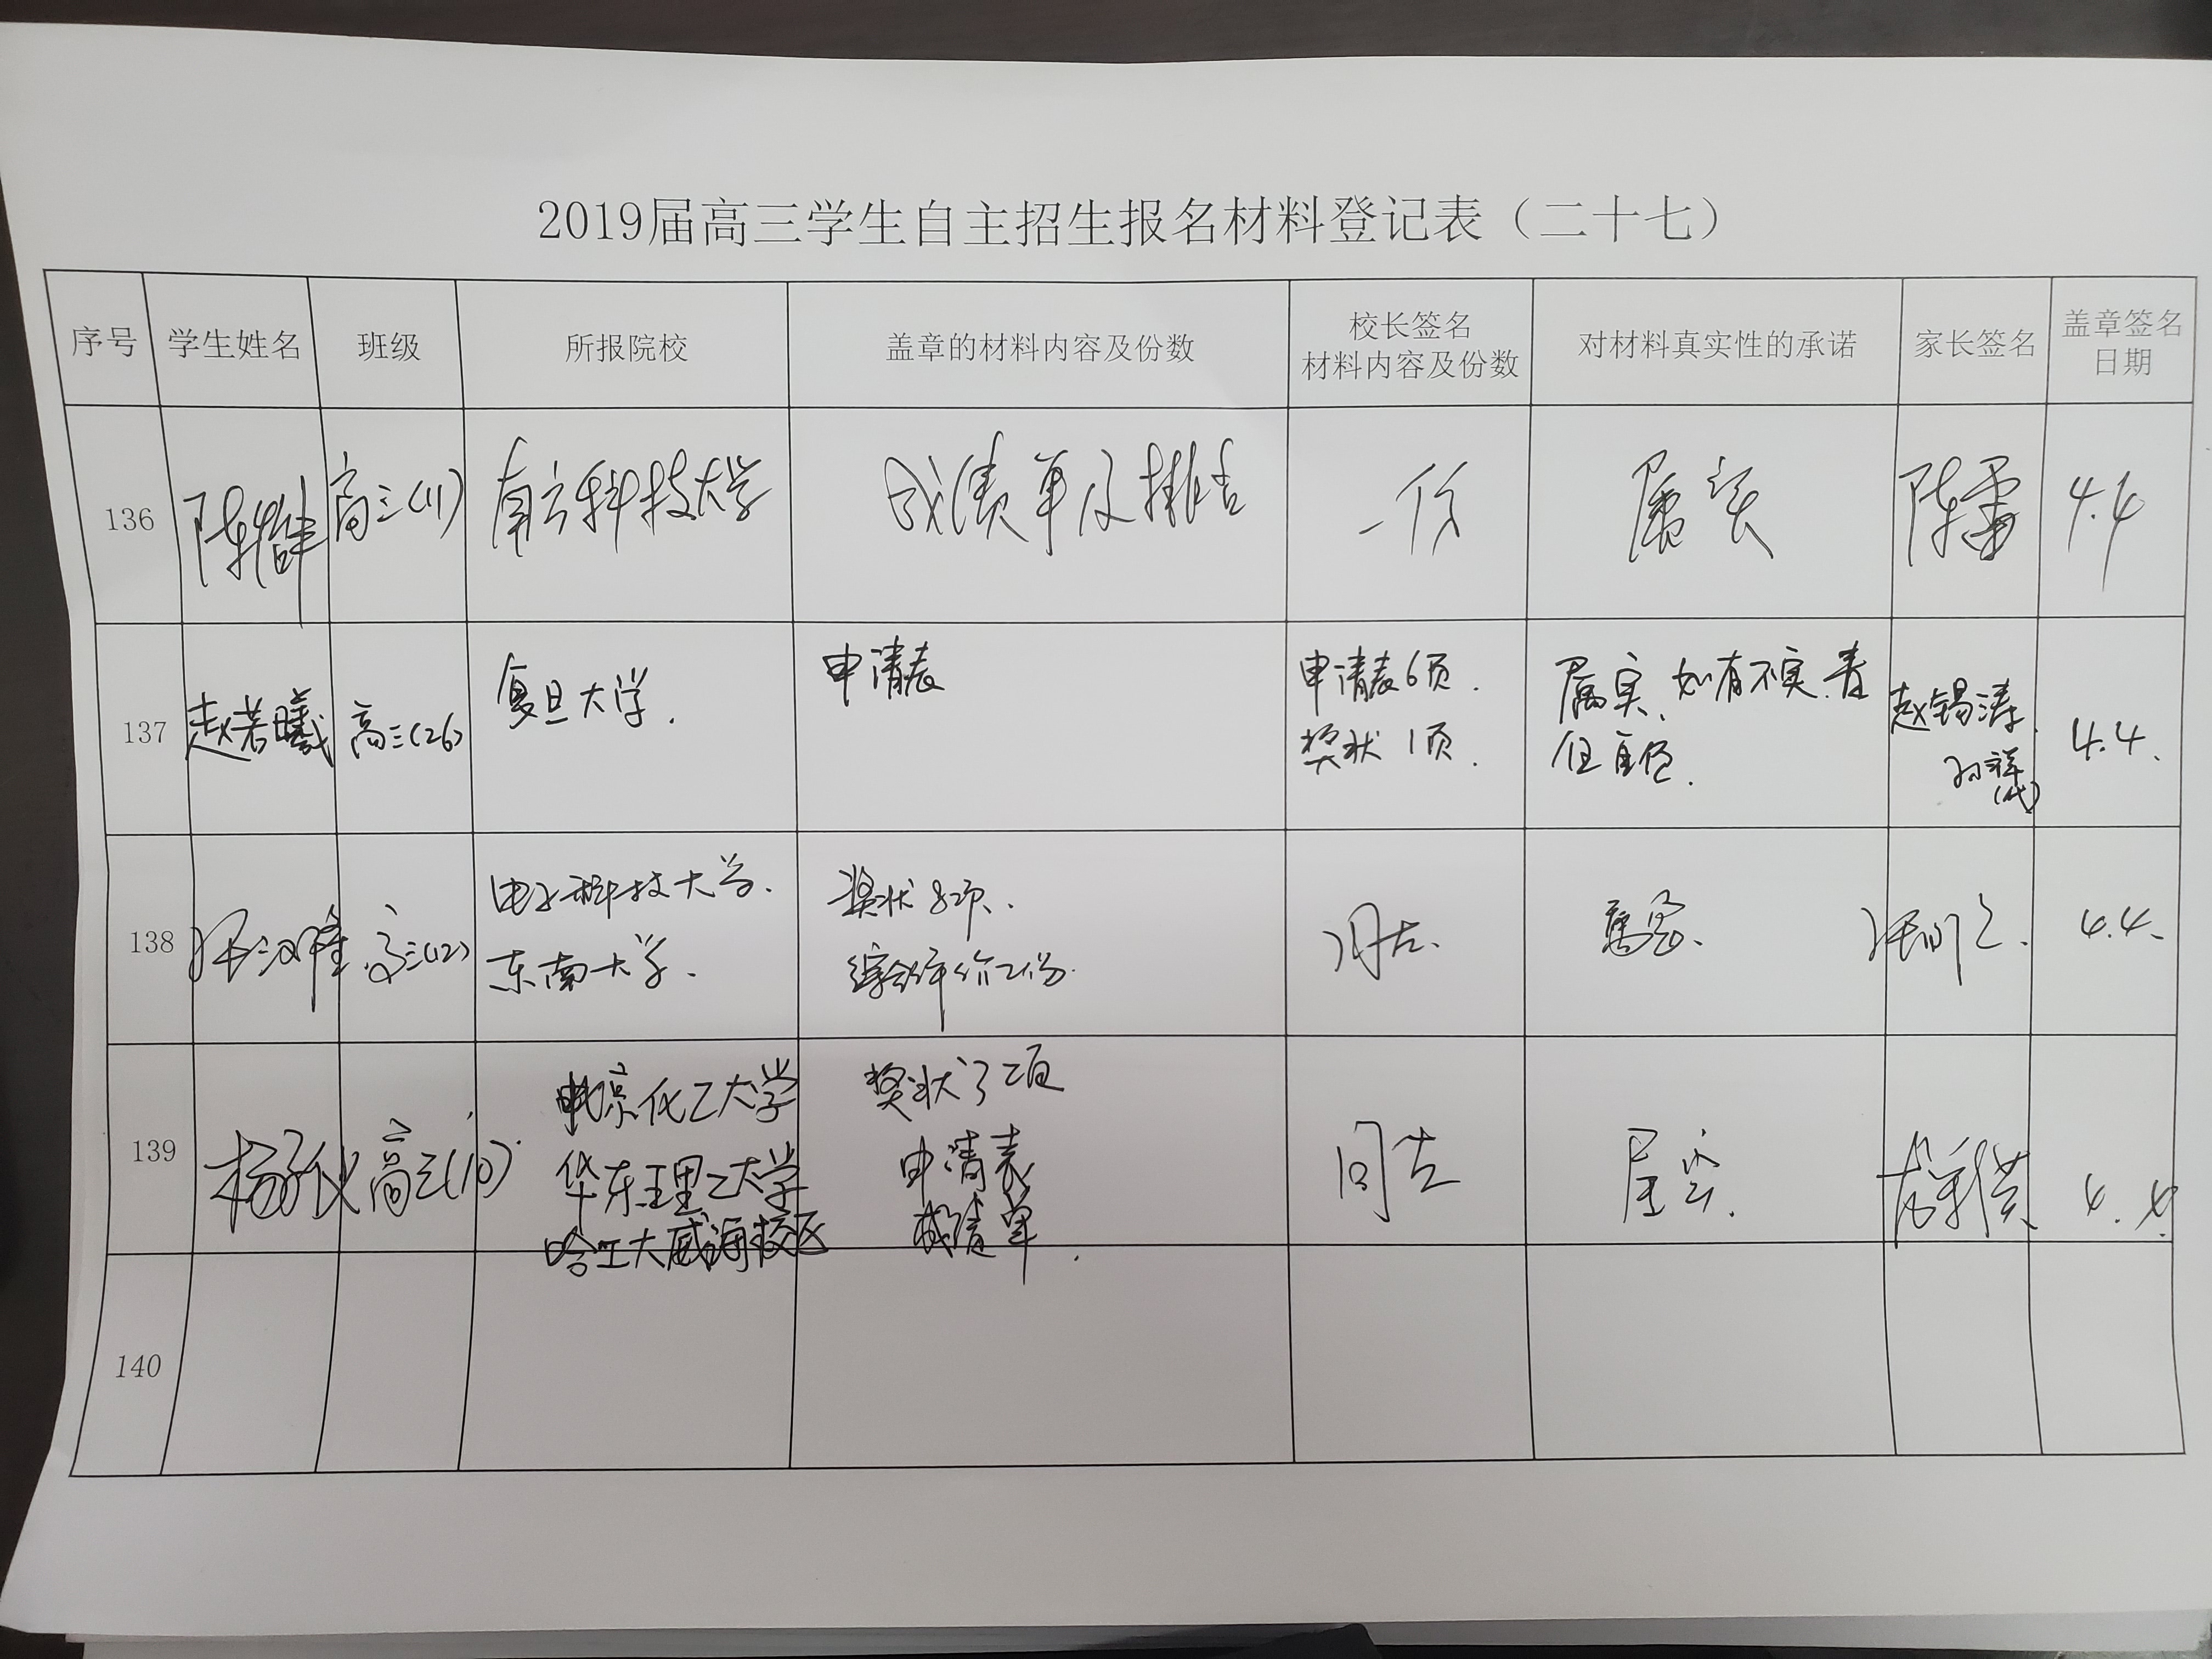 2019届高三学生自主招生报名材料登记表（二十七）
序号 学生姓名 班级 所报院校 盖章的材料内容及份数 校长签名 对材料真实性的承诺 家长签名 盖章签名
材料内容及份数 日期
136 高三(11) 南京科技大学 成绩单及排名 一份 属实 陈雷 4.4
137 赵若曦 高三(26) 复旦大学. 申请表 申请表6页. 属实、如有不实.责 赵锡涛. 4.4.
奖状1页. 任自负.
138 高三(12) 电子科技大学. 奖状8项. 同左. 属实. 4.4.
东南大学. 综合评价2份.
139 高三(10) 北京化工大学 奖状3项 同左 属实. 4.4.
华东理工大学 申请表
哈工大威海校区 成绩单.
140